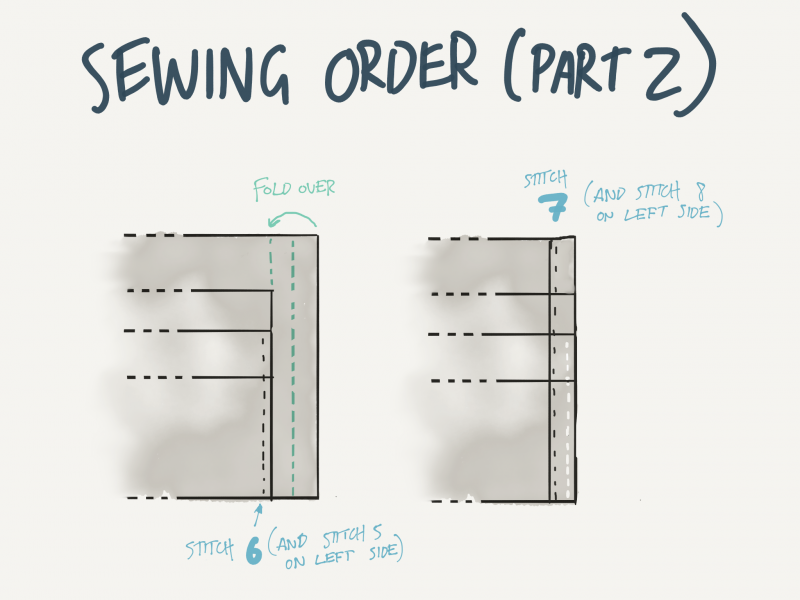 SEWING ORDER (PART 2)
FOLD OVER
STITCH
7
(AND STITCH 8
ON LEFT SIDE)
STITCH 6 (AND STITCH 5
ON LEFT SIDE)